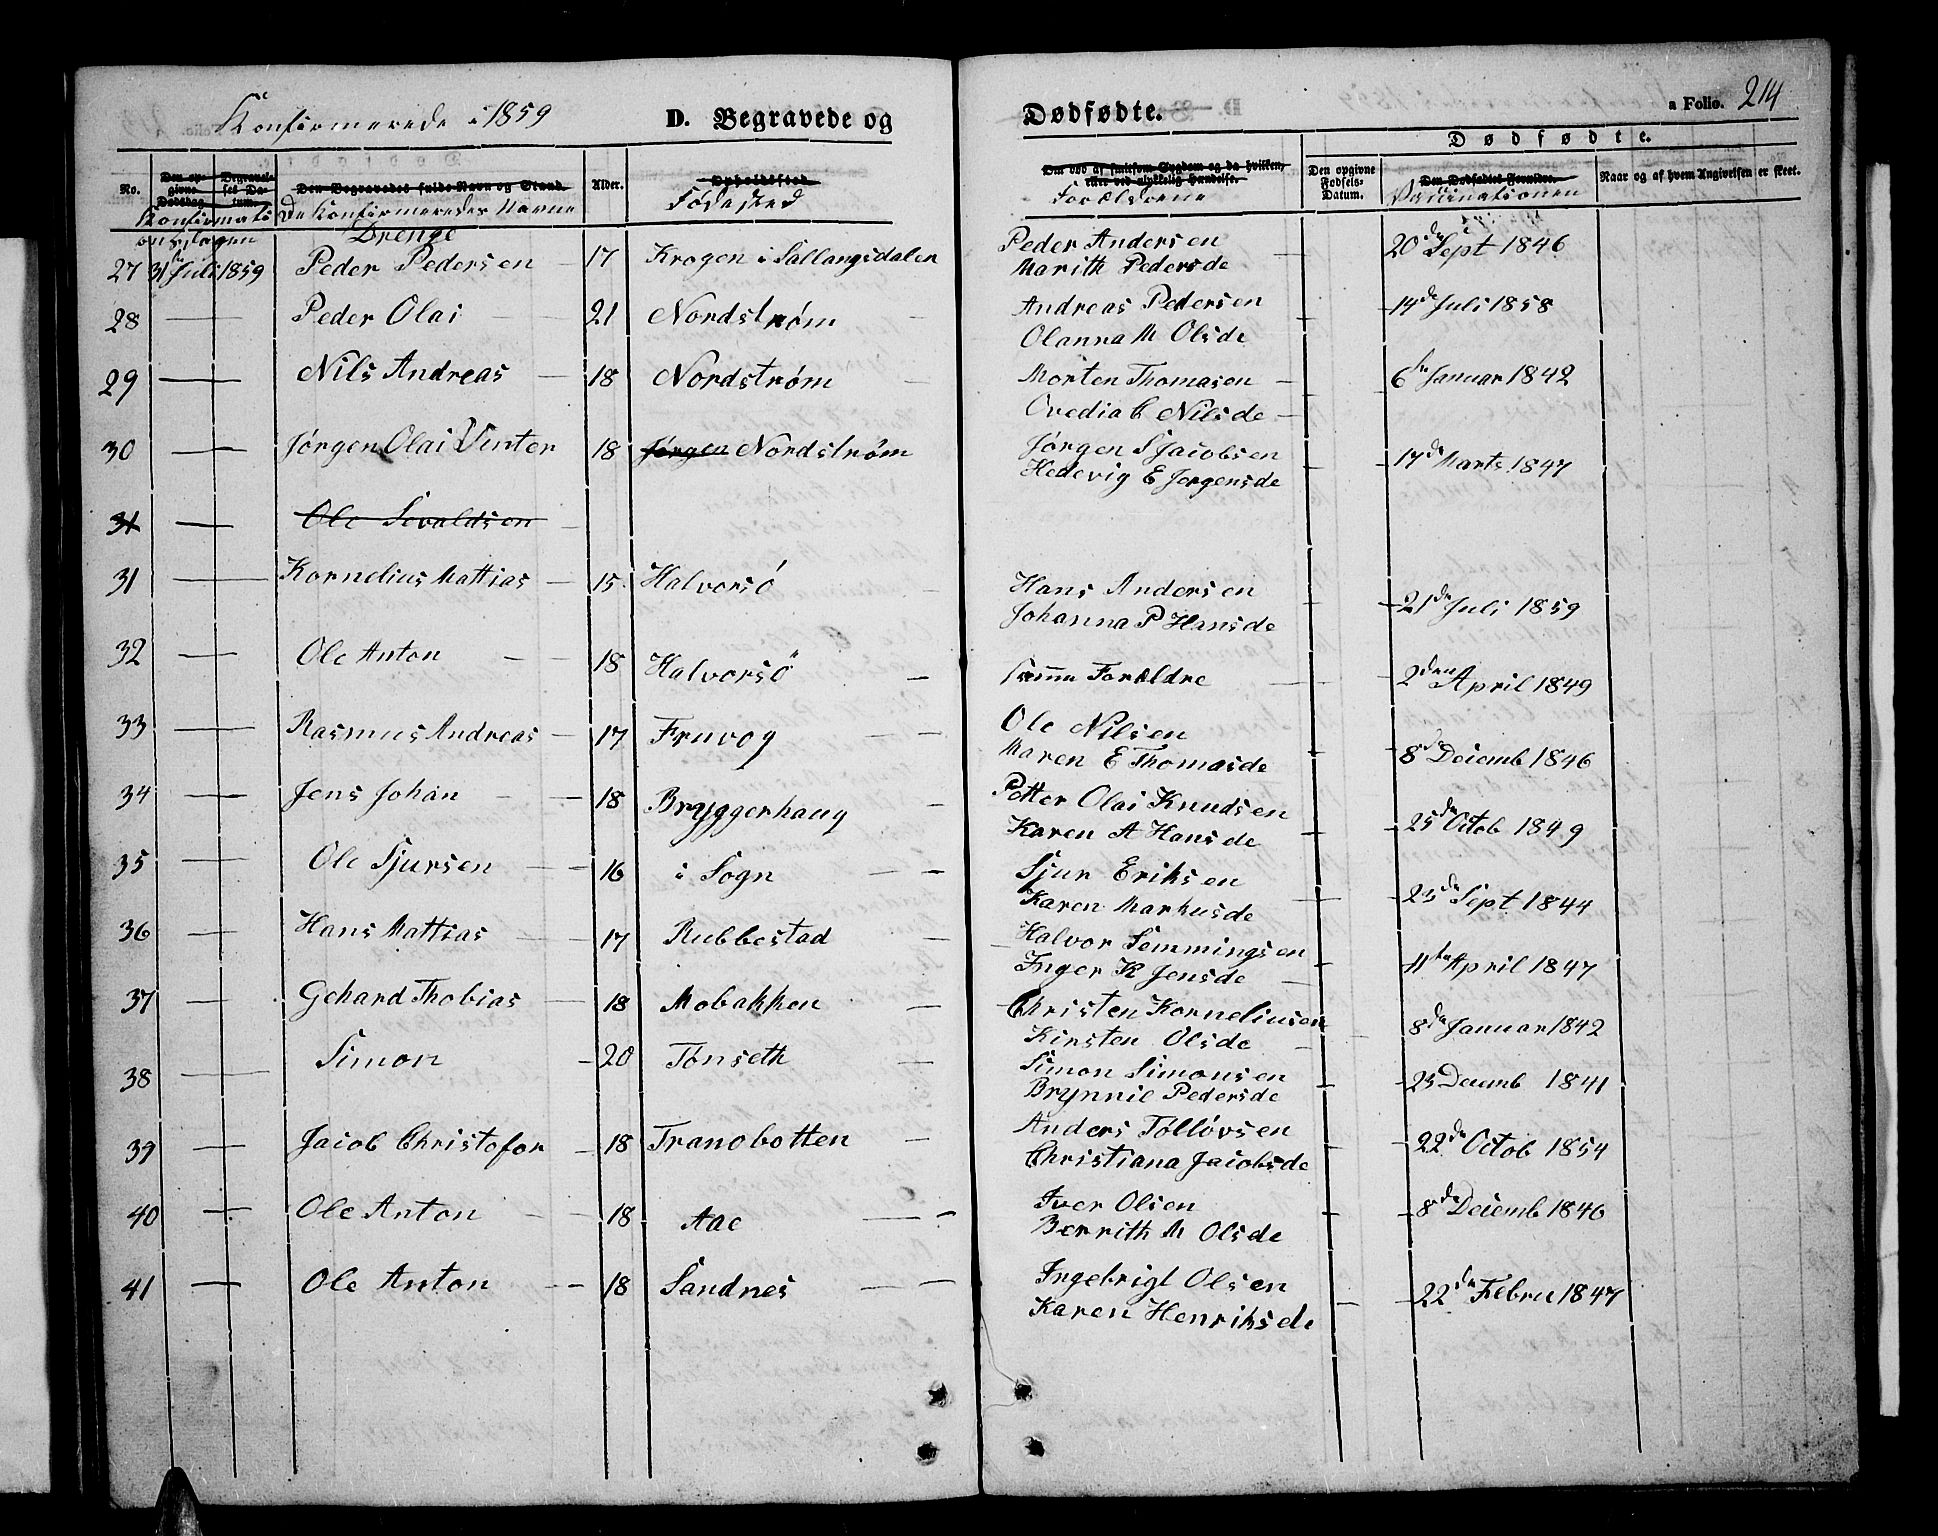 Konfirmerede i 1859 D. Begravede og Dødfødte. a Folio. 214
Dødfødte.
No. Den opgivne Dødsdag. Begravelses Datum. Den Begravedes fulde Navn og Stand. Alder. Opholdssted. Om død af smitsom Sygdom og da hvilken, eller ved ulykkelig Hændelse. Den opgivne Fødsels-Datum. Den Dødfødtes Forældre. Naar og af hvem Angivelsen er skeet.
Konfirmations dagen De Konfirmeredes Navne Fødested Forældrene Vaccinationen
Drenge
27 31te Juli 1859 Peder Pedersen 17 Krogen i Sallangsdalen Peder Andersen 20de Sept 1846
Marith Pedersde
28 — — Peder Olai 21 Nordstrøm Andreas Pedersen 14de Juli 1858
Olanna M Olsde
29 — — Nils Andreas 18 Nordstrøm Morten Thomasen 6te Januar 1842
Ovedia C Nilsde
30 — — Jørgen Olai Vinter 18 Jørgen Nordstrøm Jørgen S Jacobsen 17de Marts 1847
Hedevig E Jørgensde
31 — — Ole Sevaldsen
31 — — Kornelius Mattias 15 Halvorsø Hans Andersen 21de Juli 1859
Johanna P Hansde
32 — — Ole Anton 18 Halvorsø samme Forældre 2den April 1849
33 — — Rasmus Andreas 17 Fruvog Ole Nilsen 8de Decemb 1846
Maren E Thomasde
34 — — Jens Johan 18 Bryggerhaug Petter Olai Knudsen 25de Octob 1849
Karen A Hansde
35 — — Ole Sjursen 16 i Sogn Sjur Eriksen 23de Sept 1844
Karen Markusde
36 — — Hans Mattias 17 Rubbestad Halvor Semmingsen 11te April 1847
Inger K Jensde
37 — — Gehard Thobias 18 Mobakken Christen Korneliusen 8de Januar 1842
Kirsten Olsde
38 — — Simon 20 Tønseth Simon Simonsen 23 Decemb 1841
Brynnil Pedersde
39 — — Jacob Christofor 18 Tranobotten Anders Tølløvsen 22de Octob 1854
Christiana Jacobsde
40 — — Ole Anton 18 Aae Iver Olsen 8de Decemb 1846
Berrith M Olsde
41 — — Ole Anton 18 Sandnes Ingebrigt Olsen 22de Febru 1847
Karen Henriksde